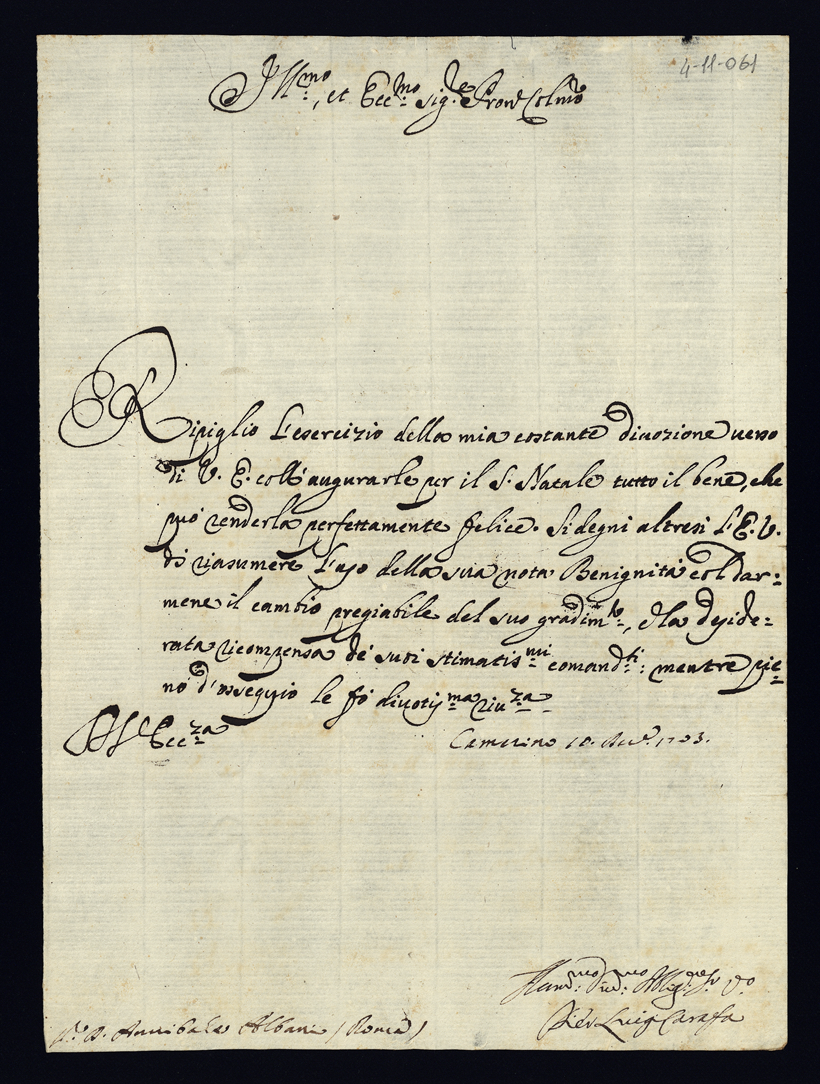 4-11-061
Ill.mo, et Ecc.mo Sig.re Pron Colmo
Ripiglio l'esercizio della mia costante divozione verso
di V. E. coll'augurarle per il S. Natale tutto il bene, che
può renderla perfettamente felice. Si degni altresì l'E. V.
di riasumere l'uso della sua nota Benignità col dar=
mene il cambio pregiabile del suo gradim.to, e la deside=
rata ricompensa de' suoi stimatis.mi comand.ti: mentre pie=
no d'ossequio le fò divotis.ma riv.za
Ecc.za
Camerino 10. 1703.
Hum.mo Div.mo Obblig.
Pier Luigi Carafa
D. Annibale Albani (Roma)